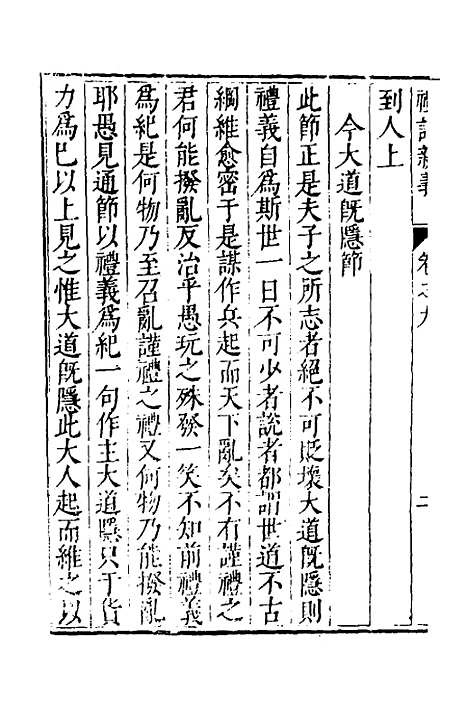 禮記新義　卷之九　二
到人上
今大道旣隱節
此節正是夫子之所志者絕不可貶壞大道旣隱則
禮義自爲斯世一日不可少者說者都謂世道不古
綱維愈密于是謀作兵起而天下亂矣不有謹禮之
君何能撥亂反治乎愚玩之殊發一笑不知前禮義
爲紀是何物乃至召亂謹禮之禮又何物乃能撥亂
耶愚見通節以禮義爲紀一句作主大道隱只于貨
力爲已以上見之惟大道旣隱此大人起而維之以